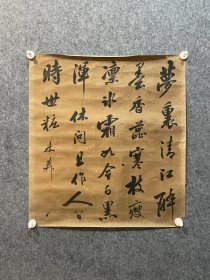 夢裏清江醉
墨香蕊寒枝瘦
凛冰霜如今白黑
渾休问且作人间
時世粧